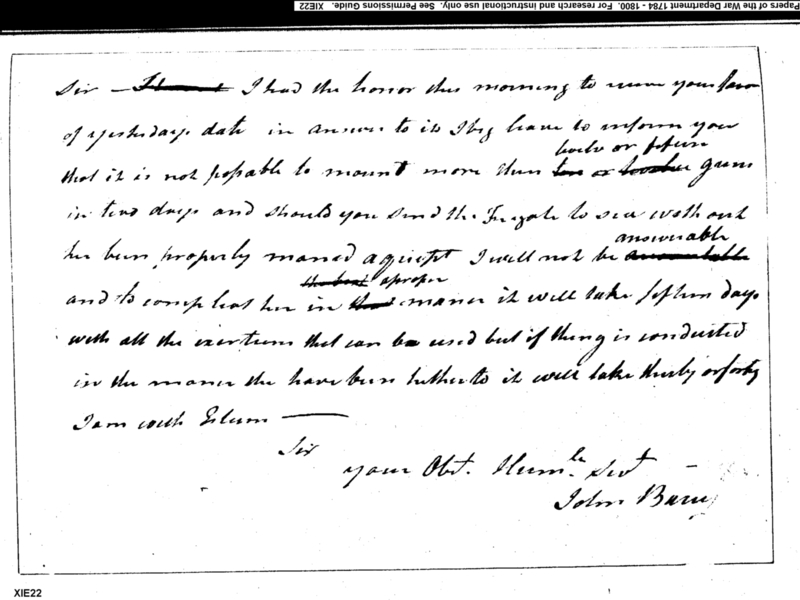 Papers of the War Department 1784 - 1800. For research and instructional use only. See Permissions Guide. XIE22
Sir — I had the honor this morning to receve your favor
of yesterdays date in answer to it I beg leave to inform you
twelve or fifteen
that it is not possable to mount more then ten or twelve guns
in two days and should you send the Frigate to sea without
answerable
her been properly maned I will not be
the best a proper
and to compleat her in that maner it will take fifteen days
with all the exertions that can be used but if thing is conducted
in the maner the have been hitherto it will take thirty or forty
I am with Esteem
Sir
your Obt. Humle. Servt
John Barry
XIE22